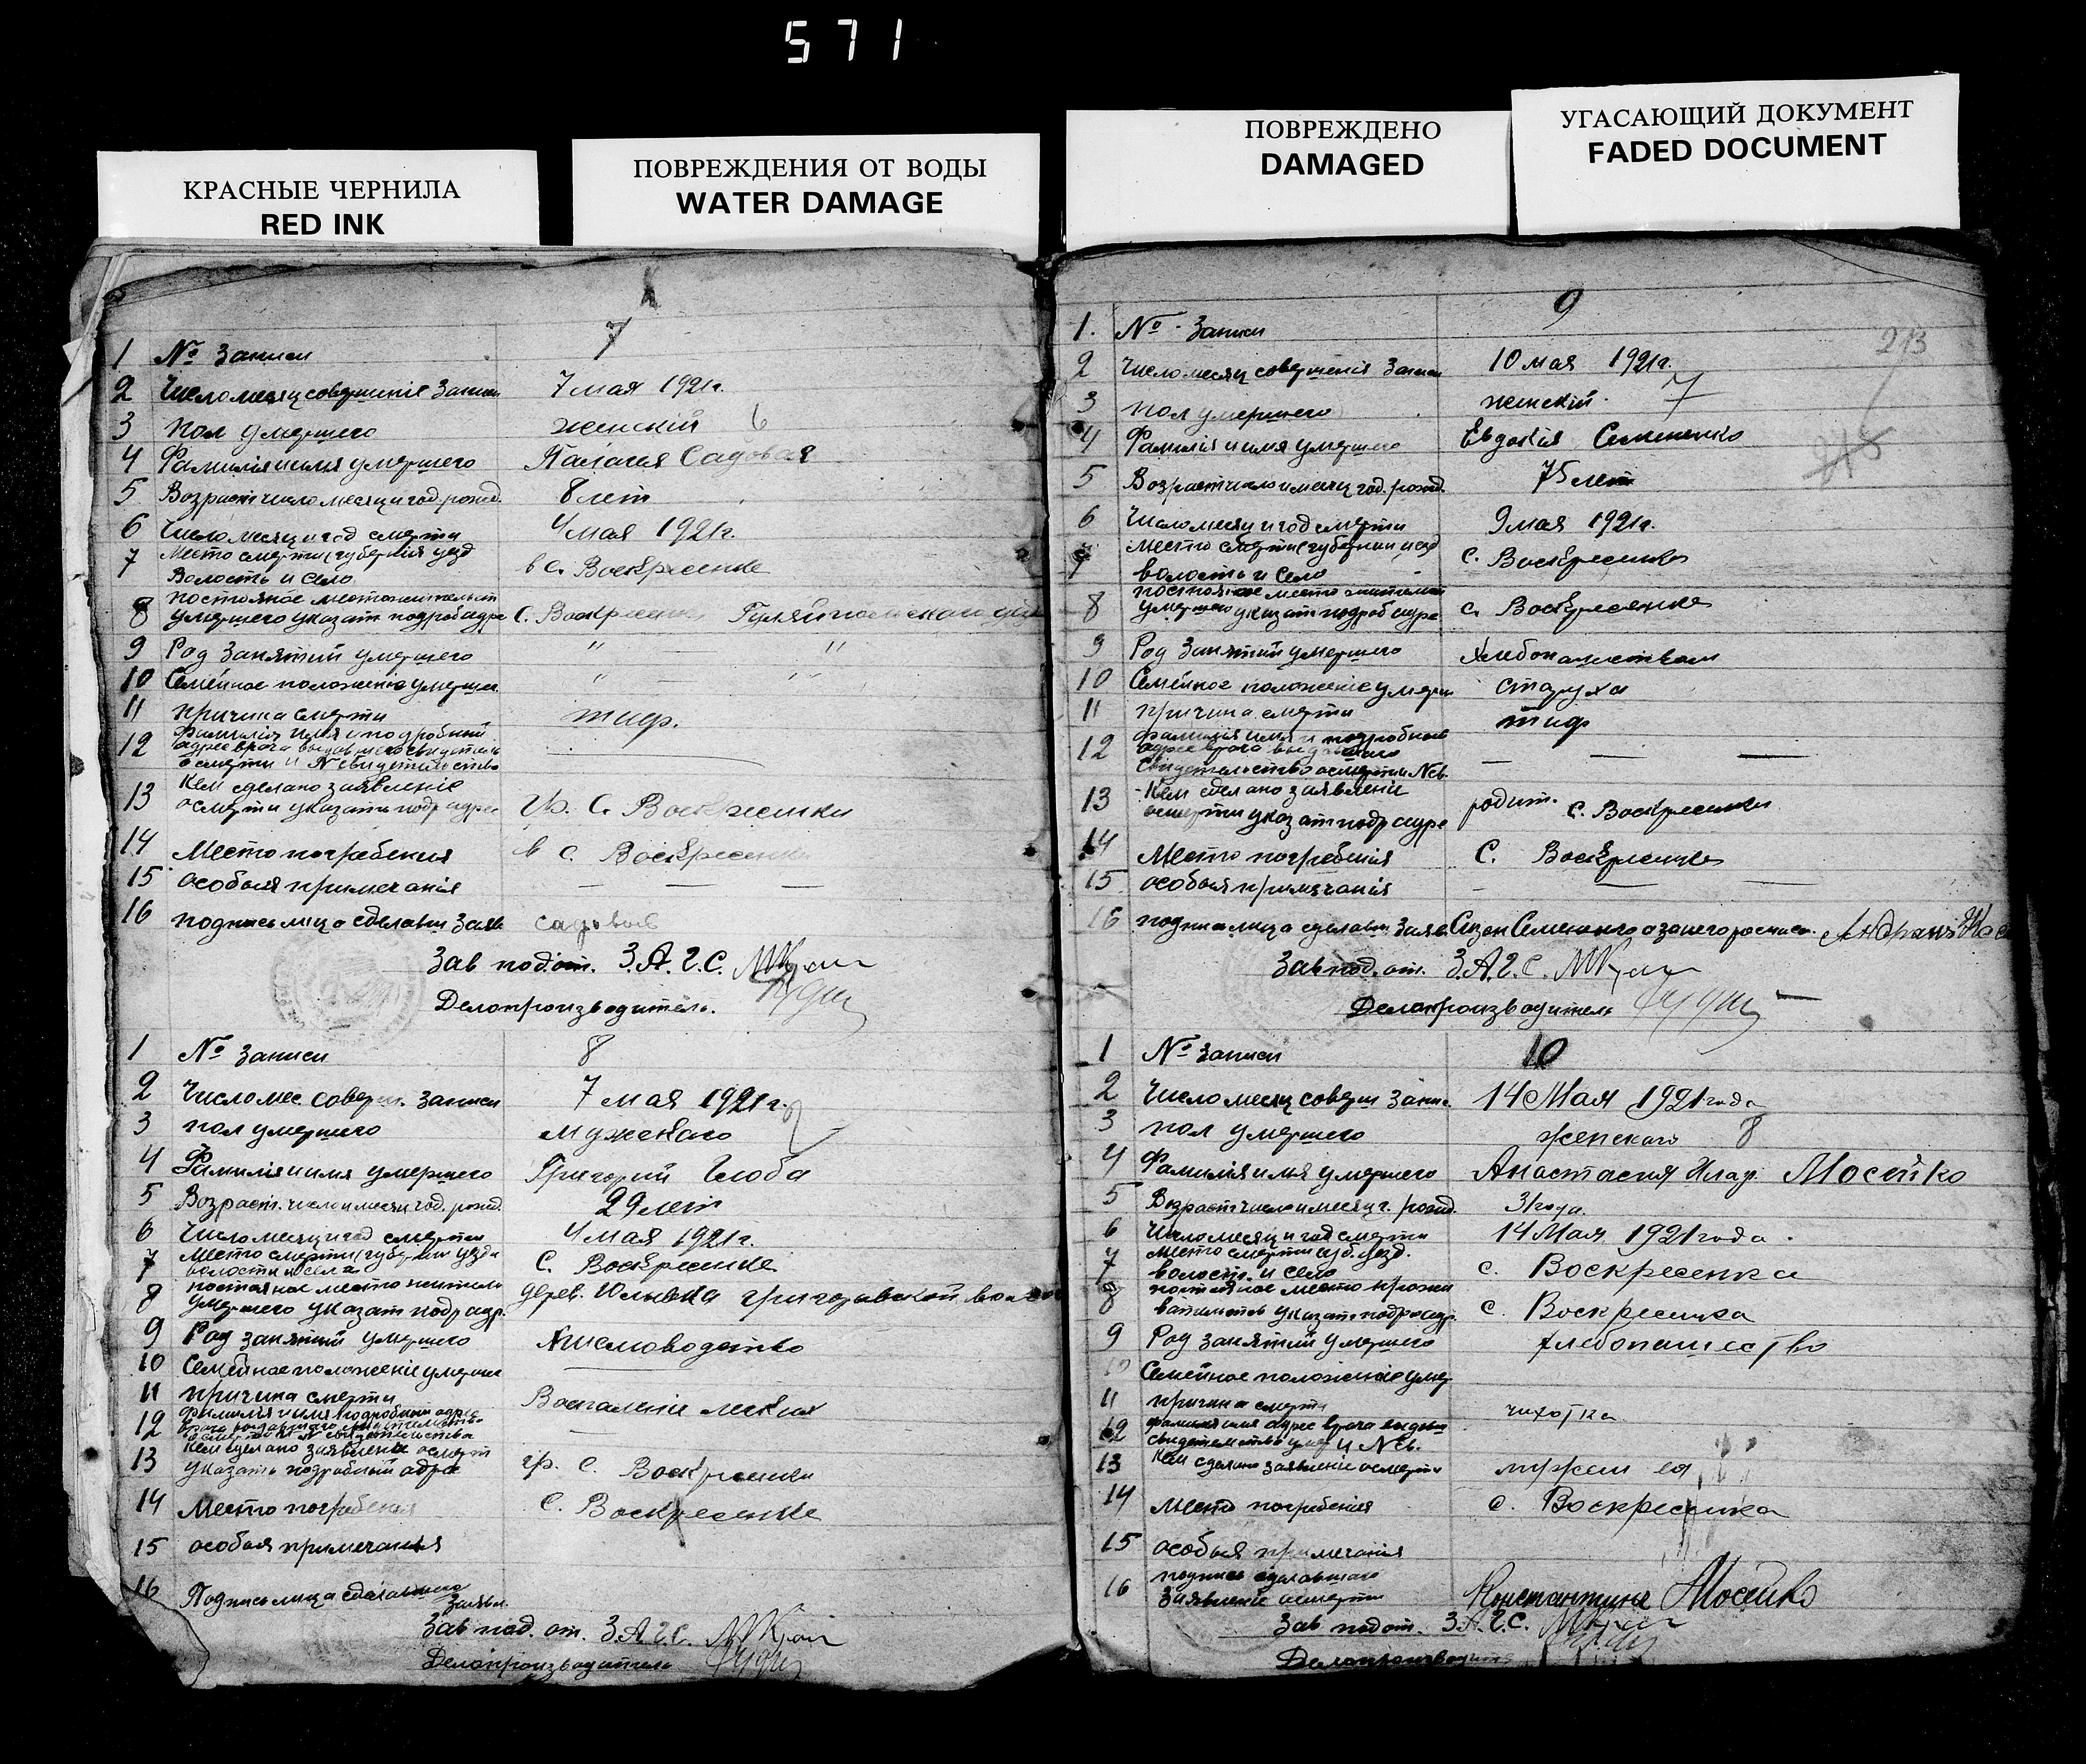 571
КРАСНЫЕ ЧЕРНИЛА
RED INK
ПОВРЕЖДЕНИЯ ОТ ВОДЫ
WATER DAMAGE
ПОВРЕЖДЕНО
DAMAGED
УГАСАЮЩИЙ ДОКУМЕНТ
FADED DOCUMENT
1 № Записи 7
2 Число месяц совершенiе Записи 7 мая 1921г.
3 Пол умершего женский 6
4 Фамилiя и имя умершего Палагея Садовая
5 Возраст число месяц и год. рожд. 8 лет
6 Число месяц и год смерти 4 мая 1921г.
7 Место смерти (губернiя уезд
Волость и село в с. Воскресенке
8 постояное местожительст
умершего указат подроб адре с. Воскресенк Гуляйпольского
9 Род Занятий умершего " — "
10 Семейное положенiе умерше " — "
11 причина смерти тиф.
12 фамилiя имя и подробный
адрес врача
о смерти и № свидетельства —
13 Кем сделано заявленiе
о смерти указать подр адрес гр. с. Воскресенки
14 Место погребения в с. Воскресенк
15 особыя примечанiя — — —
16 подпись лица сделавш Заяв садовые
Зав под.от. З.А.Г.С. МКрат
Делопроизводитель.
1 № Записи 8
2 Число мес. соверш. Записи 7 мая 1921г.
3 пол умершего мужскаго
4 Фамилiя и имя умершего Григорий Глоба
5 Возраст. число и месяц год. рожд. 29 лет
6 Число месяц и год смерти 4 мая 1921г.
7 Место смерти (губернии уезда
волости и села С. Воскресенке
8 постояное место жительс
умершего указат подр адр. дерев. григоровской
9 Род занятий умершего
10 Семейное положенiе умерше —
11 причина смерти Воспаленiе легких
12 фамилiя и имя подробный адрес —
13 Кем сделано заявление о смерти
указать подробный адрес гр. с. Воскресенки
14 Место погребения С. Воскресенке
15 особыя примечания
16 Подпись лица сделавшего
Заявл.
Зав под. от. З.А.Г.С. МКрат
Делопроизводитель
1. № Записи 9
213
2 Число месяц совершенiя Записи 10 мая 1921г.
3 пол умершего женский 7
4 Фамилiя и имя умершего Евдокiя Семененко
5 Возраст число и месяц год. рожд. 75 лет
6 Число месяц и год смерти 9 мая 1921г.
7 Место смерти (губернии уезд
волость и село с. Воскресенке
8 постояное место жительст
умершего указат подроб адре с. Воскресенке
9 Род Занятий умершего Хлебопашеством
10 Семейное положенiе умерш старуха
11 причина смерти тиф
12 Фамилiя имя и подробный
адрес врача выдавшаго
свидетельство о смерти и № св. — — —
13 Кем сделано заявленiе
о смерти указат подр адре родит. с. Воскресенки
14 Место погребенiя С. Воскресенке
15 особыя примечанiя — — —
16 подпись лица сделавш Заяв Семененко а за него росписал. Андрианъ
Зав под. от. З.А.Г.С. МКрат
Делопроизводитель
1 № Записи 10
2 Число месяц соверш Запис. 14 Мая 1921 года
3 пол умершего женскаго 8
4 Фамилiя и имя умершего Анастасия Мосейко
5 Возраст число и месяц г. рожд. 31 года.
6 Число месяц и год смерти 14 Мая 1921 года.
7 Место смерти губ. уезд.
волость. и село с. Воскресенка
8 постояное место прожи
указат подр адр. с. Воскресенка
9 Род занятий умершего хлебопашество
10 Семейное положенiе умер
11 причина смерти чахотка
12 фамилия имя адрес врача выдавш
свидетельство и № св.
13 Кем сделано заявленiе о смерти мужем ея
14 Место погребения с. Воскресенка
15 особыя примечанiя
16 подпись сделавшаго
Заявленiе о смерти Константинъ Мосейко
Зав под от. З.А.Г.С. МКрат
Делопроизводит